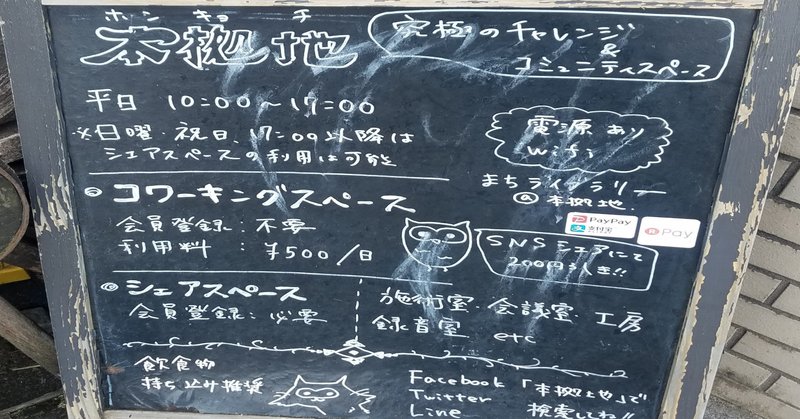 ホンキョチ
本拠地
究極のチャレンジ
&
コミュニティスペース
平日 10:00〜17:00
※日曜・祝日、17:00以降は
シェアスペースの利用は可能
電源あり
wifi
まちライブラリー
@本拠地
PayPay
支付宝
R Pay
コワーキングスペース
会員登録:不要
利用料:¥500/日
SNSシェアにて
200円引き!!
シェアスペース
会員登録:必要
施術室・会議室・工房
録音室 etc
飲食物
持ち込み推奨
Facebook
Twitter
Line
「本拠地」で
検索してね!!